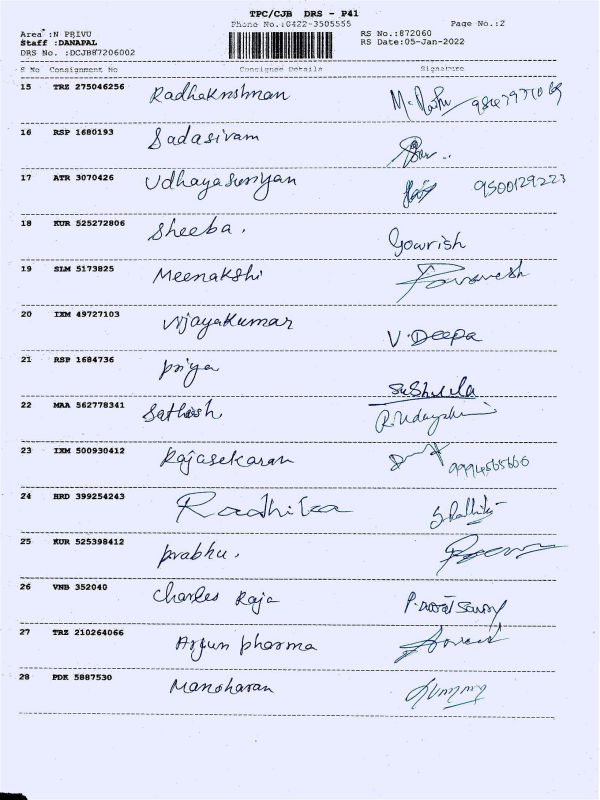 TPC/CJB DRS - P41
Phone No.:0422-3505555 Page No.:2
Area :N PRIVU RS No.:872060
Staff :DANAPAL RS Date:05-Jan-2022
DRS No. :DCJB87206002
S No Consignment No Consignee Details Signature
15 TRZ 275046256 Radhakrishnan
16 RSP 1680193 Sadasivam
17 ATR 3070426 Udhayasuriyan 9500129223
18 KUR 525272806 Sheeba. Gowrish
19 SLM 5173825 Meenakshi
20 IXM 49727103 Vijayakumar V.Deepa
21 RSP 1684736 priya Sushula
22 MAA 562778341 Sathish
23 IXM 500930412 Rajasekaran
24 HRD 399254243 Radhika
25 KUR 525398412 prabhu.
26 VNB 352040 Charles Raja
27 TRZ 210264066 Arjun pharma
28 PDK 5887530 Manoharan